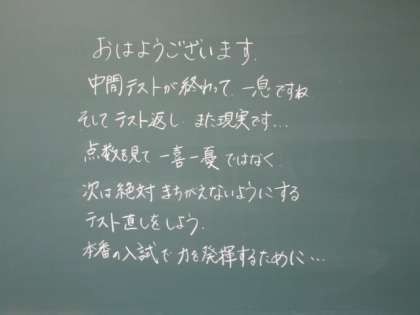 おはようございます.
中間テストが終わって.一息ですね
そしてテスト返し.また現実です...
点数を見て一喜一憂ではなく.
次は絶対まちがえないようにする
テスト直しをしよう.
本番の入試で力を発揮するために...